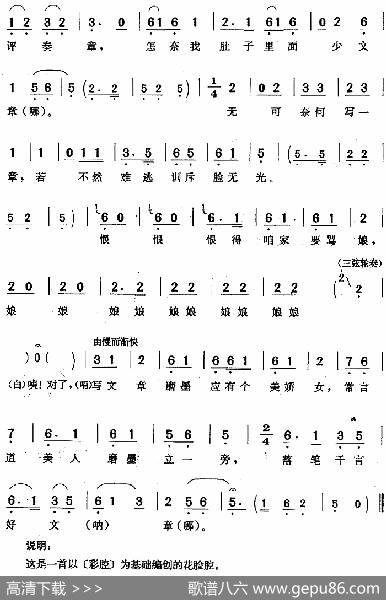 1 2 3 2 | 3. 0 | 61 61 6 | 2. 1 | 61 6 | 1 0 2 6 |
评 奏 章， 怎 奈 我 肚 子 里 面 少 文
1 56 | 5 (2. 2 | 5 2 5) | 1/4 2 | 0 2 | 3 3 | 2 3 |
章(哪)。 无 可 奈 何 写 一
1 | 1 | 0 1 1 | 3. 5 | 6 5 | 6 1 | 5 | (5. 5 | 2 2 |
章，若 不然 难 逃 训 斥 脸 无 光。
5 2 | 5) | 6 0 | 6 0 | 6. 1 | 6 1 | 2 3 | 2
恨 恨 恨 得 咱 家 要 骂 娘，
(三弦轮奏)
2 0 | 2 0 | 2. 2 | 2 2 | 2 2 | 2 0 | ( 2 |
娘 娘 娘 娘 娘 娘 娘 娘
由慢而渐快
) 0 ( | ) 3 1 | 2 | 6 1 | 6 6 1 | 6 1 | 1 2 | 7 6 |
(白)咦！对了，(唱)写 文 章 磨 墨 应 有 个 美 娇 女，常 言
7 | 6. 1 | 6 1 | 6 5 | 5 | 2/4 6. 1 | 3 5 |
道 美 人 磨 墨 立 一 旁， 落 笔 千 言
6. 1 3 5 | 6 1 5 | (0 5 1 | 6 2 | 5 0) |
好 文 (呐) 章(哪)。
说明：
这是一首以〔彩腔〕为基础编创的花脸腔。
高清下载 >>> 歌谱八六 www.gepu86.com